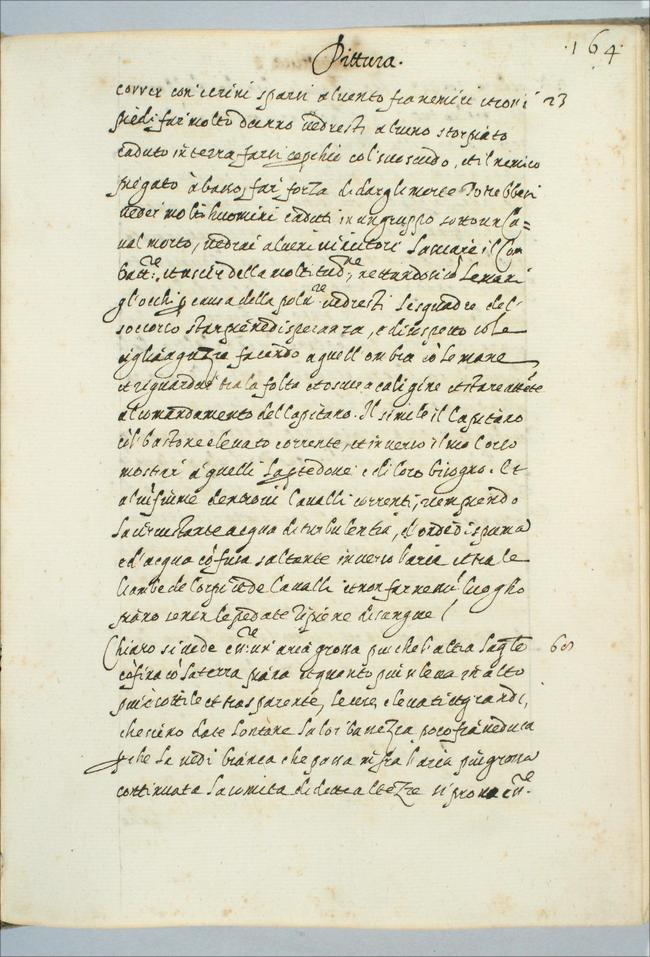 Pittura.
.164.
correr con i crini sparsi al uento fra nemici et con i 23
piedi far molto danno uedresti alcuno storpiato
caduto in terra farsi copchio col suo scudo, et il nemico
piegato à basso, far forza di dargli morte Potrebbesi
ueder molti huomini caduti in un gruppo sotto un Ca=
ual morto, uedrai alcuni uincitori Lasciare il Com
batt.re, et uscir della moltitud.ne, nettandosi cõ Le mani
gl'occhi p causa della polu.re uedresti Le squadre del
soccorso star piene di speranza, e di sospetto cõ le
ciglia aguzza facendo a quell'ombra cõ Le mane
et riguardar tra la folta et oscura caligine et stare attẽte
al comandamento del Capitano. Il simile il Capitano
cõl bastone eleuato corrente, et inuerso il soccorso
mostrar à quelli La pte doue è di loro bisogno. Et
alcũ fiume dentroui Caualli correnti, riempiendo
La circustante acqua di turbulentia, d'onde di spuma
e d'acqua cõfusa saltante inuerso l'aria et tra le
Gambe de Corpi de Caualli et non far nesũ luogho
piano senon le pedate ripiene di sangue /
Chiaro si uede è un'aria grossa piu che l'altra La qle 68
cõfina cõ La terra piana et quanto piu si leua in alto
piu è sottile et trasparente, le cose eleuati et grandi,
che sieno da te Lontane La lor bassezza poco fia ueduta
p che La uedi bianca che passa infra l'aria piu grossa
continuata La cimita di dette altezze si proua